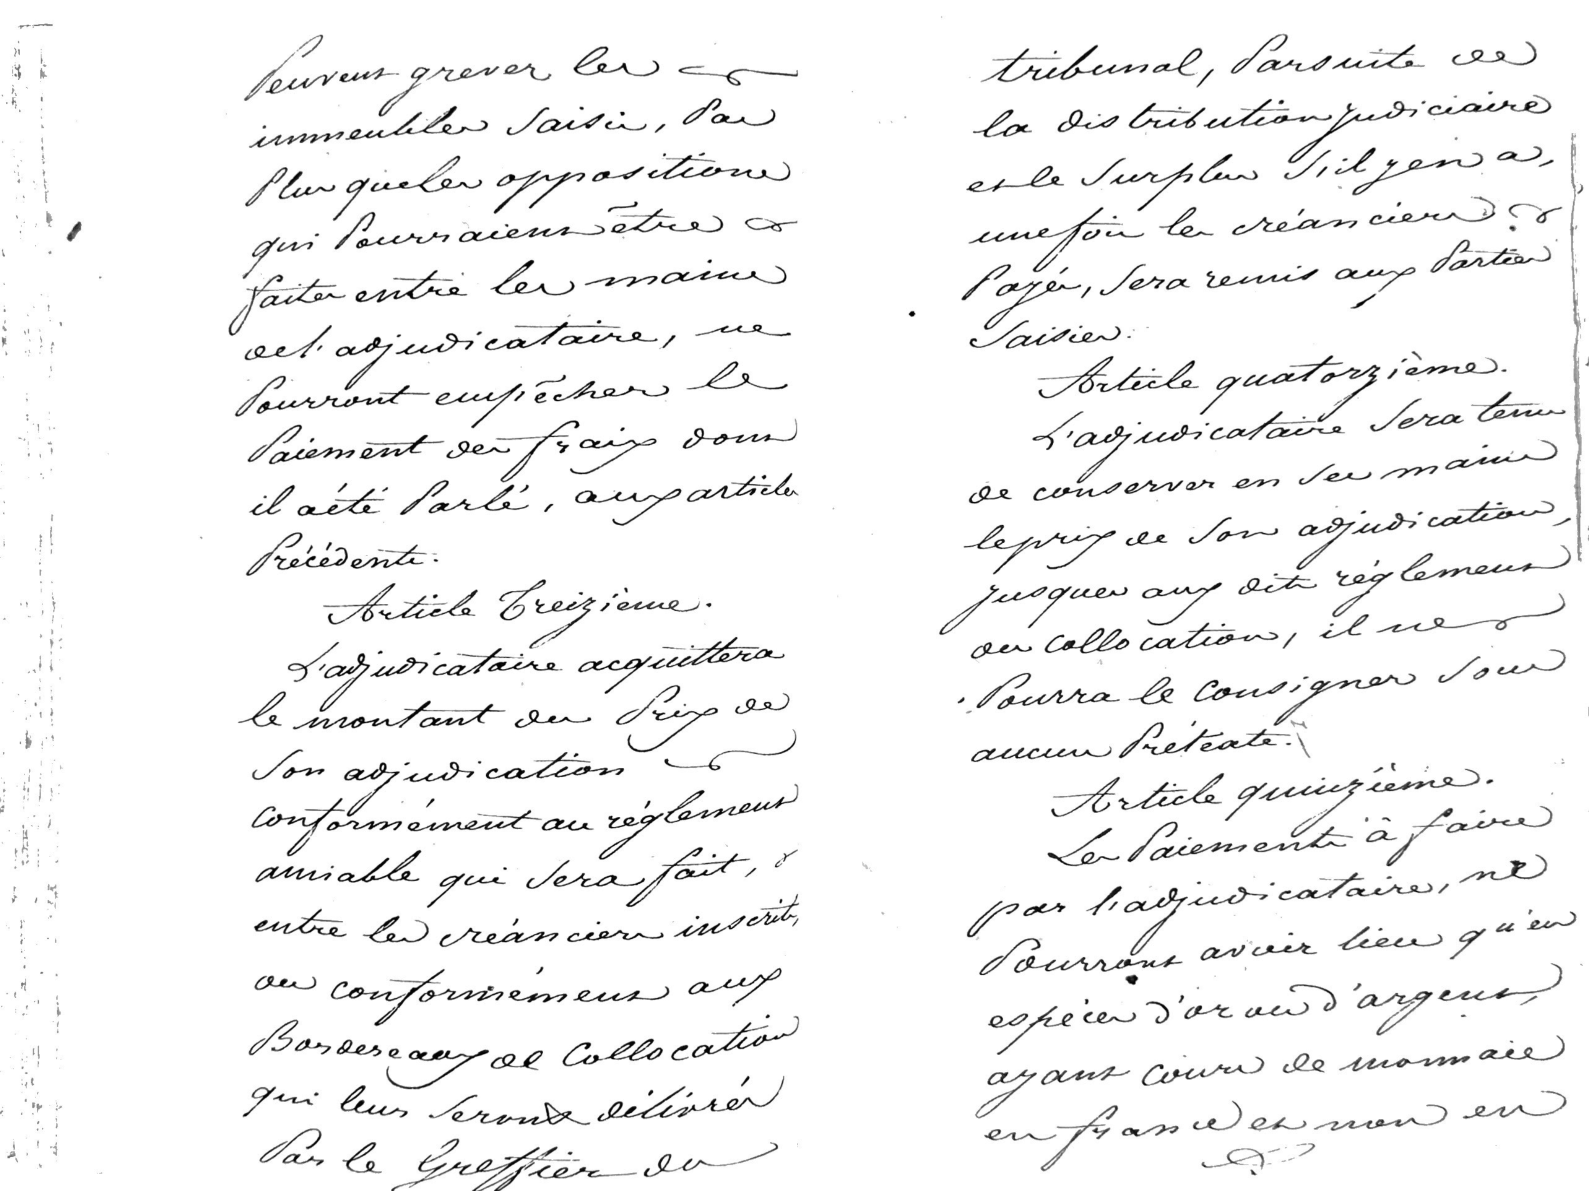 Peuvent grever les
immeubles saisis, Pas
Plus que les oppositions
qui Pourraient être
faites entre les mains
de l'adjudicataire, ne
Pourront empêcher le
Paiement des fraix dont
il a été Parlé, aux articles
Précédents.
Article Treizième.
L'adjudicataire acquittera
le montant du Prix de
Son adjudication
Conformément au réglement
amiable qui Sera fait,
entre les créanciers inscrits,
ou conformément aux
Bordereaux de Collocation
qui leur Seront délivrés
Par le Greffier du
tribunal, Parsuite de
la distribution judiciaire
et le Surplus S'il y en a,
une fois les créanciers
Payés, Sera remis aux Parties
Saisies.
Article quatorzième.
L'adjudicataire Sera tenu
de conserver en Ses mains
le prix de Son adjudication,
jusques aux dits réglement
ou collocation, il ne
Pourra le Consigner Sous
aucun Prétexte.
Article quinzième.
Les Paiements à faire
par l'adjudicataire, ne
Pourront avoir lieu qu'en
espèces d'or ou d'argent,
ayant cours de monnaie
en france et non en